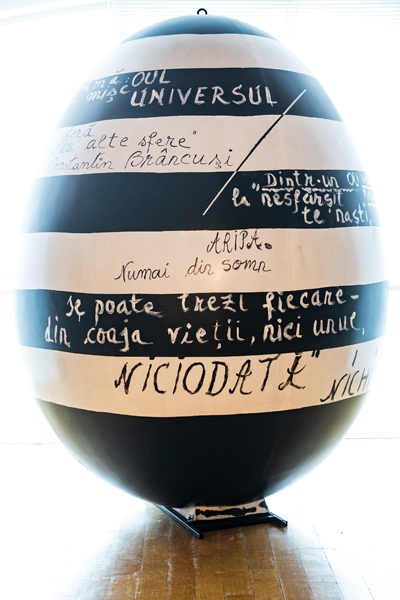 OUL
mișc UNIVERSUL
alte sfere"
Constantin Brâncuși
Dintr-un OU
la "nesfârșit
te naști,
ARIPA.
Numai din somn
se poate trezi fiecare-
din coaja vieții, nici unul,
NICIODATĂ"
NICHI